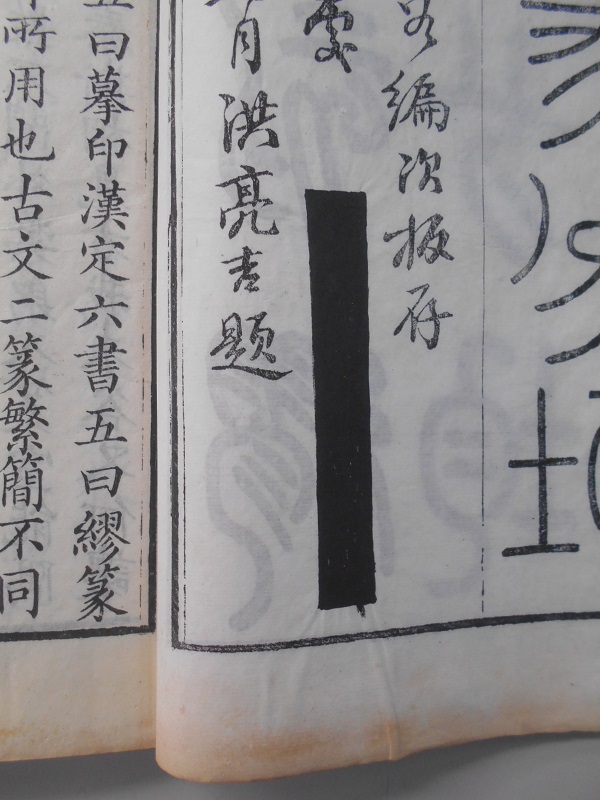 編次板存
處
月洪亮吉題
五曰摹印漢定六書五曰繆篆
所用也古文二篆繁簡不同